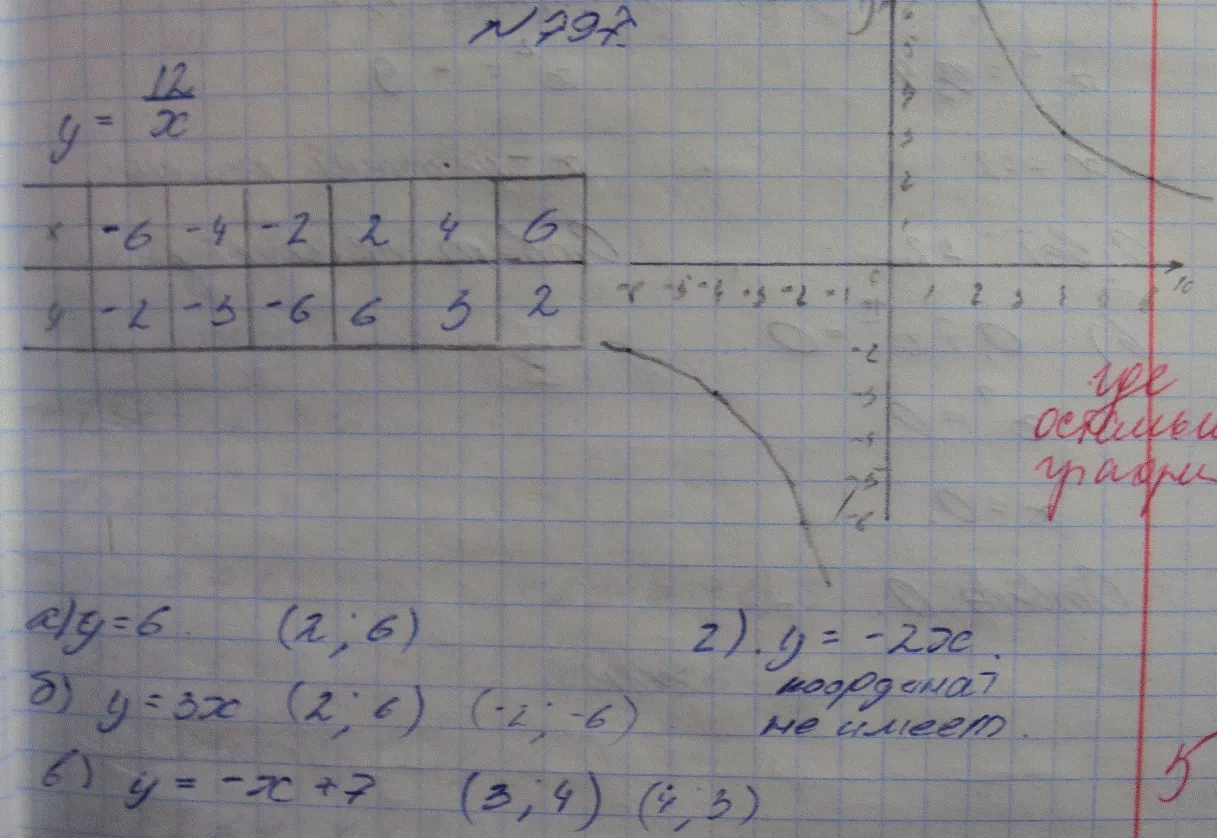 №797.
y = 12/x
x -6 -4 -2 2 4 6
y -2 -3 -6 6 3 2
6
5
4
3
2
1
-6 -5 -4 -3 -2 -1 0 1 2 3 4 5 6
-2
-3
-4
-5
-6
где
остальн
график
а) y = 6. (2; 6)
б) y = 3x (2; 6) (-2; -6)
в) y = -x + 7 (3; 4) (4; 3)
г). y = -2x.
координат
не имеет.
5